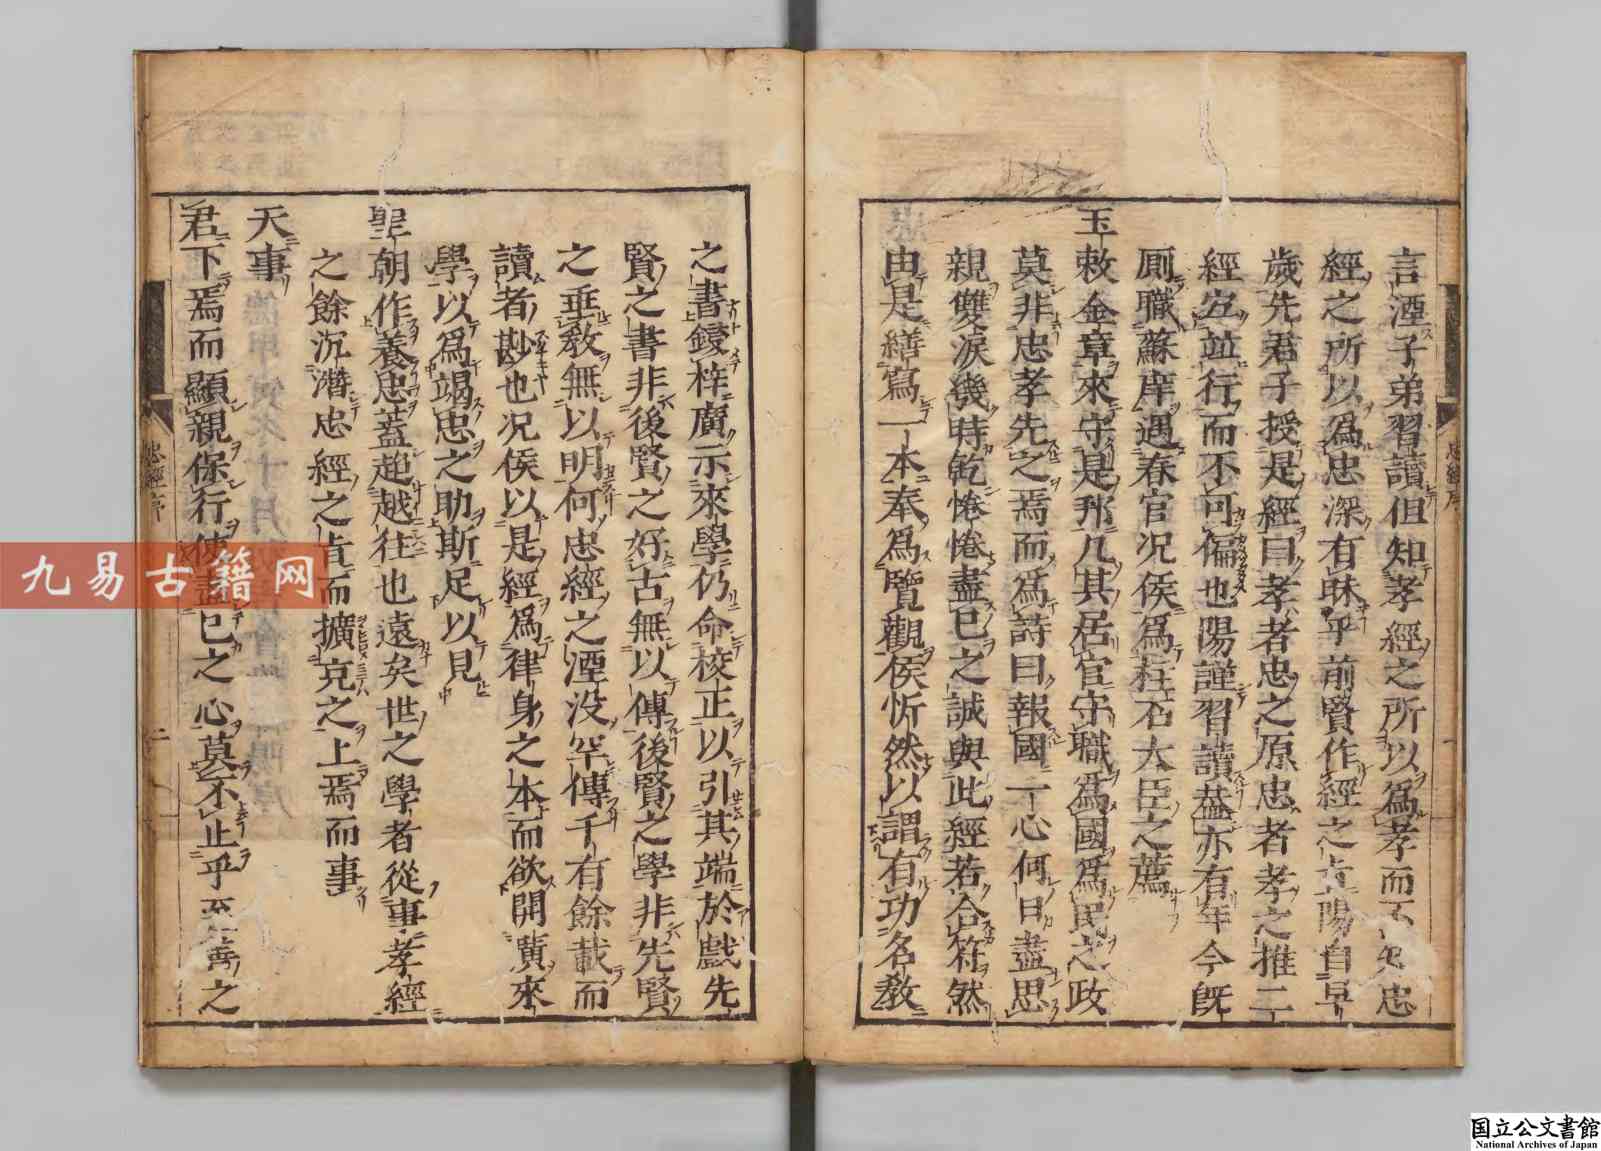 言湮子弟習讀但知孝經之所以爲孝而不知忠
經之所以爲忠深有昧乎前賢作經之旨陽自早
歲先君子授是經曰孝者忠之原忠者孝之推二
經宜並行而不可偏也陽謹習讀葢亦有年今旣
厠職蘇庠遇春官况侯爲柱石大臣之薦
玉敕金章來守是邦凡其居官守職爲國爲民之政
莫非忠孝先之焉而爲詩曰報國一心何日盡思
親雙淚幾時乾惓惓盡已之誠與此經若合符然
由是繕寫一本奉爲覽觀侯忻然以謂有功名教
之書鋟梓廣示來學仍命校正以引其端於戲先
賢之書非後賢之好古無以傳後賢之學非先賢
之垂教無以明何忠經之湮没罕傳千有餘載而
讀者尠也况侯以是經爲律身之本而欲開廣來
學以爲竭忠之助斯足以見
聖朝作養忠藎超越往也遠矣世之學者從事孝經
之餘沉潛忠經之旨而擴充之上焉而事
天事
君下焉而顯親保行使盡已之心莫不止乎至善之
忠經序
二
忠經序
九易古籍网
国立公文書館
National Archives of Japan